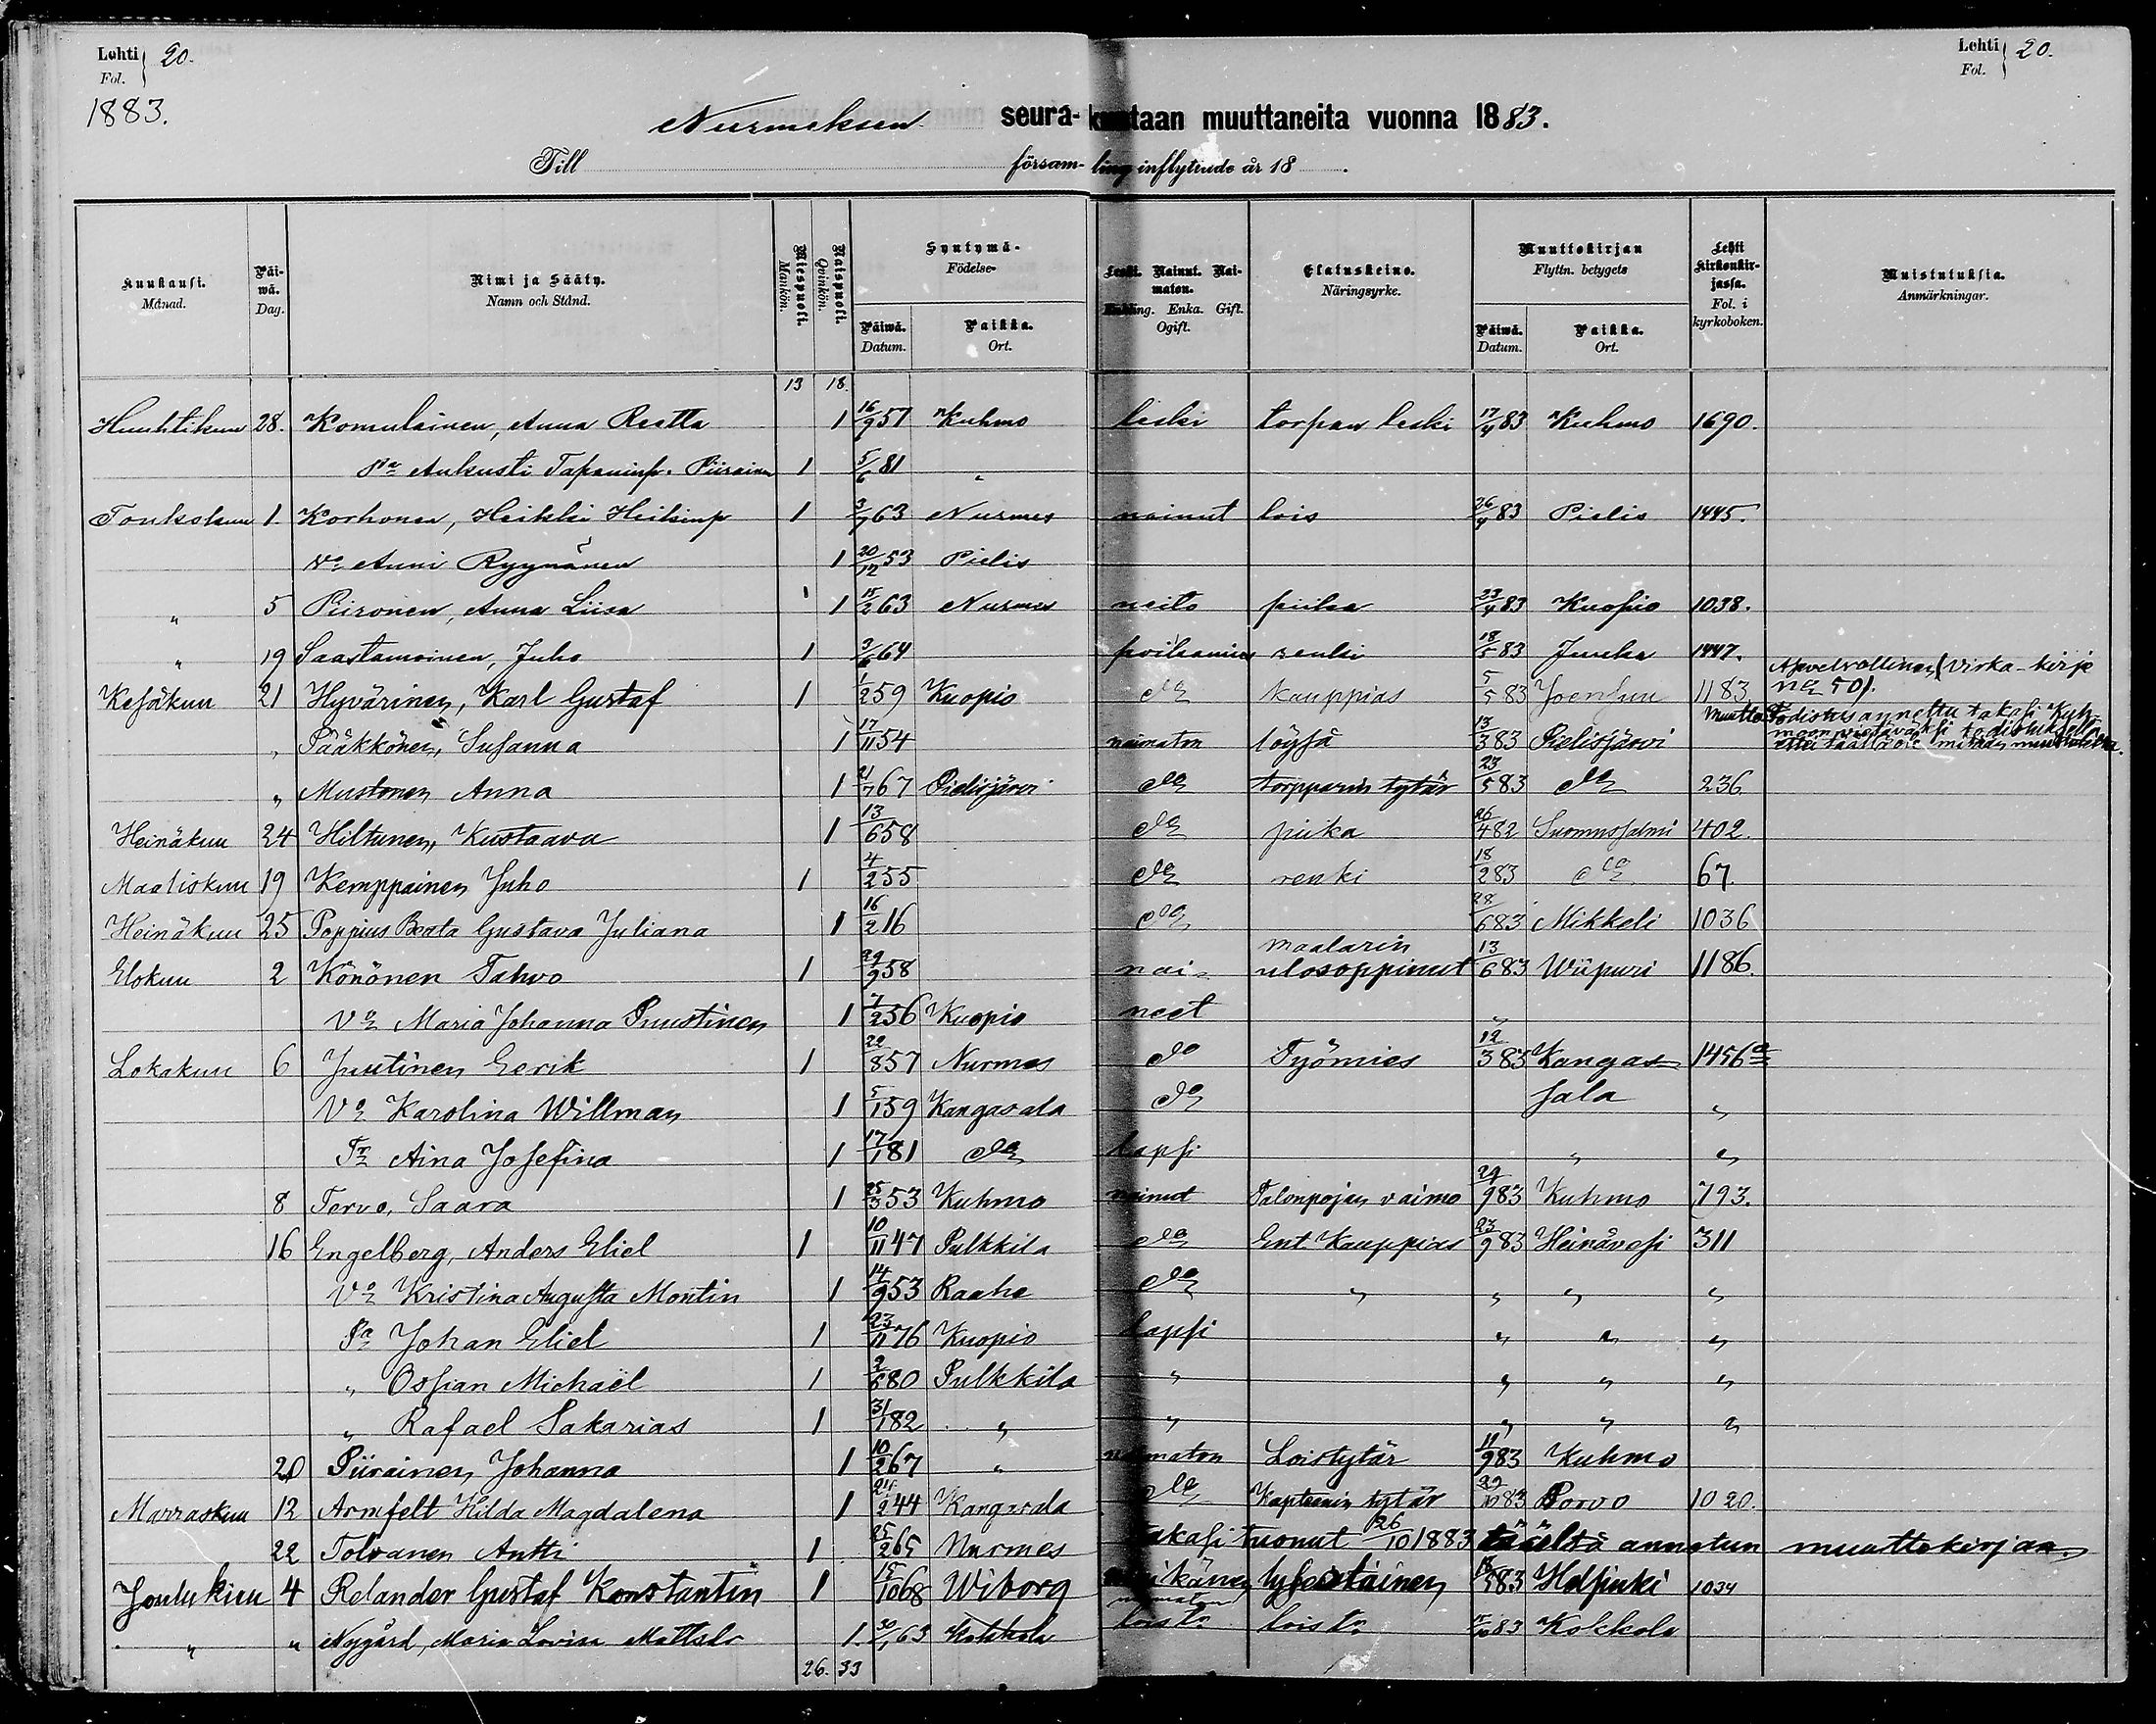 Lehti 20.
Fol.
1883.
Lehti 20.
Fol.
Nurmeksen seura-kuntaan muuttaneita vuonna 1883.
Till församling inflyttade år 18 .
Kuukausi. Månad. | Päiwä. Dag. | Nimi ja Sääty. Namn och Stånd. | Miespuoli. Mankön. | Naispuoli. Qvinkön. | Syntymä- Födelse- Päiwä. Datum. Paikka. Ort. | Leski. Nainut. Naimaton. Enkling. Enka. Gift. Ogift. | Elatuskeino. Näringsyrke. | Muuttokirjan Flyttn. betygets Päiwä. Datum. Paikka. Ort. | Lehti kirkonkirjassa. Fol. i kyrkoboken. | Muistutuksia. Anmärkningar.
13 18.
Huuhtikuu 28. Komulainen, Anna Reetta 1 16/9 57 Kuhmo leski torpan leski 17/4 83 Kuhmo 1690.
Pa Aukusti Tapaninp. Piirainen 1 5/6 81 "
Toukokuu 1. Korhonen, Heikki Heikinp 1 3/7 63 Nurmes nainut lois 26/4 83 Pielis 1445.
Vo Anni Ryynänen 1 20/12 53 Pielis
" 5 Piironen, Anna Liisa 1 15/2 63 Nurmes neito piika 23/4 83 Kuopio 1038.
" 19 Saastamoinen, Juho 1 3/6 64 poikamies renki 18/5 83 Juuka 1447.
Kesäkuu 21 Hyvärinen, Karl Gustaf 1 1/2 59 Kuopio do kauppias 5/5 83 Joensuu 1183 Asevelvollinen (virka-kirje no 50).
" Pääkkönen, Susanna 1 17/11 54 naimaton löysä 13/3 83 Pielisjärvi Muutto Todistus annettu takasi Kuhmoon
" Mustonen Anna 1 21/7 67 Pielisjärvi do torpparin tytär 23/5 83 do 236
Heinäkuu 24 Hiltunen, Kustaava 1 13/6 58 do piika 26/4 82 Suomussalmi 402.
Maaliskuu 19 Kemppainen Juho 1 4/2 55 do renki 18/2 83 do 67.
Heinäkuu 25 Poppius Beata Gustava Juliana 1 16/2 16 do 28/6 83 Mikkeli 1036
Elokuu 2 Könönen Tahvo 1 29/9 58 nai- maalarin ulosoppinut 13/6 83 Wiipuri 1186.
Vo Maria Johanna Puustinen 1 7/2 56 Kuopio neet "
Lokakuu 6 Juutinen Eerik 1 22/8 57 Nurmes do Työmies 12/3 83 Kangas- 1456a
Vo Karolina Willman 1 5/1 59 Kangasala do sala "
Tr Aina Josefina 1 17/1 81 do lapsi " "
8 Tervo, Saara 1 25/3 53 Kuhmo nainut Talonpojan vaimo 29/9 83 Kuhmo 793.
16 Engelberg, Anders Eliel 1 10/11 47 Pulkkila do Ent. Kauppias 23/9 83 Heinävesi 311
Vo Kristina Augusta Montin 1 14/9 53 Raahe do " " " "
Pa Johan Eliel 1 23/11 76 Kuopio lapsi " " "
" Ossian Michaël 1 2/6 80 Pulkkila " " " "
" Rafael Sakarias 1 31/1 82 " " " " "
20 Piirainen Johanna 1 10/2 67 " naimaton Loistytär 11/9 83 Kuhmo
Marraskuu 12 Armfelt Hilda Magdalena 1 24/2 44 Kangasala do Kapteenin tytär 29/10 83 Porvo 1020.
22 Tolvanen Antti 1 25/2 65 Nurmes takasi tuonut 26/10 1883 täältä annetun muuttokirjan.
Joulukuu 4 Relander Gustaf Konstantin 1 15/10 68 Wiborg 18/5 83 Helsinki 1034
" " Nygård, Maria Lovisa Mattsdr 1. 30/1 63 Kokkola naimaton lois tr lois tr 15/10 83 Kokkola
26. 33